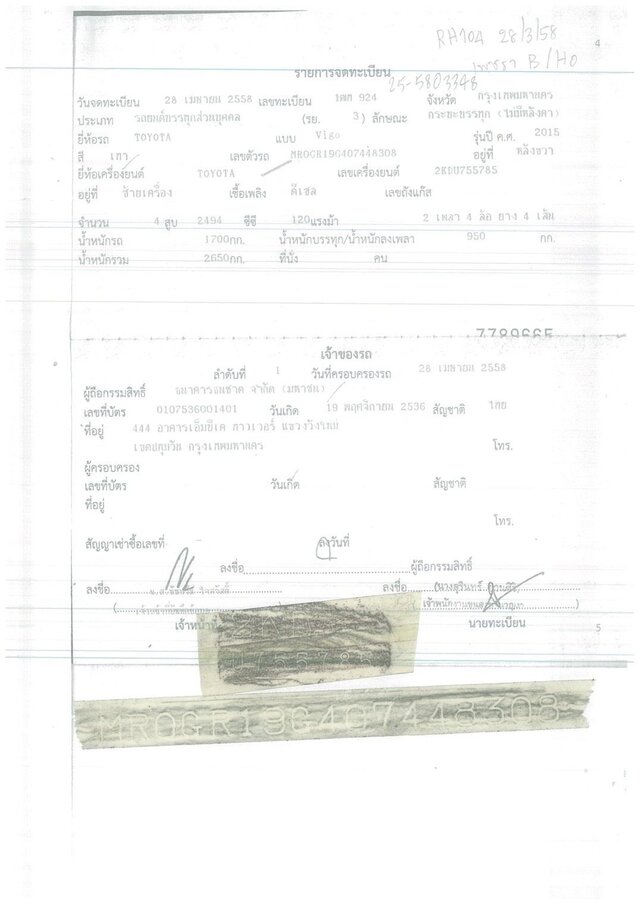 RH104 28/3/58
4
B/HO
รายการจดทะเบียน
25-5803348
วันจดทะเบียน 28 เมษายน 2558 เลขทะเบียน 1ฒฅ 924 จังหวัด กรุงเทพมหานคร
ประเภท รถยนต์บรรทุกส่วนบุคคล (รย. 3) ลักษณะ กระบะบรรทุก (ไม่มีหลังคา)
ยี่ห้อรถ TOYOTA แบบ Vigo รุ่นปี ค.ศ. 2015
สี เทา เลขตัวรถ MR0GR19G407448308 อยู่ที่ หลังขวา
ยี่ห้อเครื่องยนต์ TOYOTA เลขเครื่องยนต์ 2KDU755785
อยู่ที่ ซ้ายเครื่อง เชื้อเพลิง ดีเซล เลขถังแก๊ส
จำนวน 4 สูบ 2494 ซีซี 120แรงม้า 2 เพลา 4 ล้อ ยาง 4 เส้น
น้ำหนักรถ 1700กก. น้ำหนักบรรทุก/น้ำหนักลงเพลา 950 กก.
น้ำหนักรวม 2650กก. ที่นั่ง คน
เจ้าของรถ
ลำดับที่ 1 วันที่ครอบครองรถ 28 เมษายน 2558
ผู้ถือกรรมสิทธิ์ ธนาคารธนชาต จำกัด (มหาชน)
เลขที่บัตร 0107536001401 วันเกิด 19 พฤศจิกายน 2536 สัญชาติ ไทย
ที่อยู่ 444 อาคารเอ็มบีเค ทาวเวอร์ แขวงวังใหม่
เขตปทุมวัน กรุงเทพมหานคร โทร.
ผู้ครอบครอง
เลขที่บัตร วันเกิด สัญชาติ
ที่อยู่
โทร.
สัญญาเช่าซื้อเลขที่ ลงวันที่
ลงชื่อ ผู้ถือกรรมสิทธิ์
ลงชื่อ ลงชื่อ
เจ้าหน้าที่ นายทะเบียน
5
U755785
MR0GR19G407448308